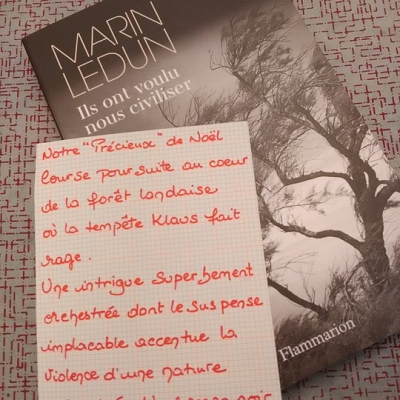 MARIN
LEDUN
Ils ont voulu
nous civiliser
Notre "Précieux" de Noël
Course poursuite au coeur
de la forêt landaise
où la tempête Klaus fait
rage.
Une intrigue superbement
orchestrée dont le suspense
implacable accentue la
violence d'une nature
Flammarion